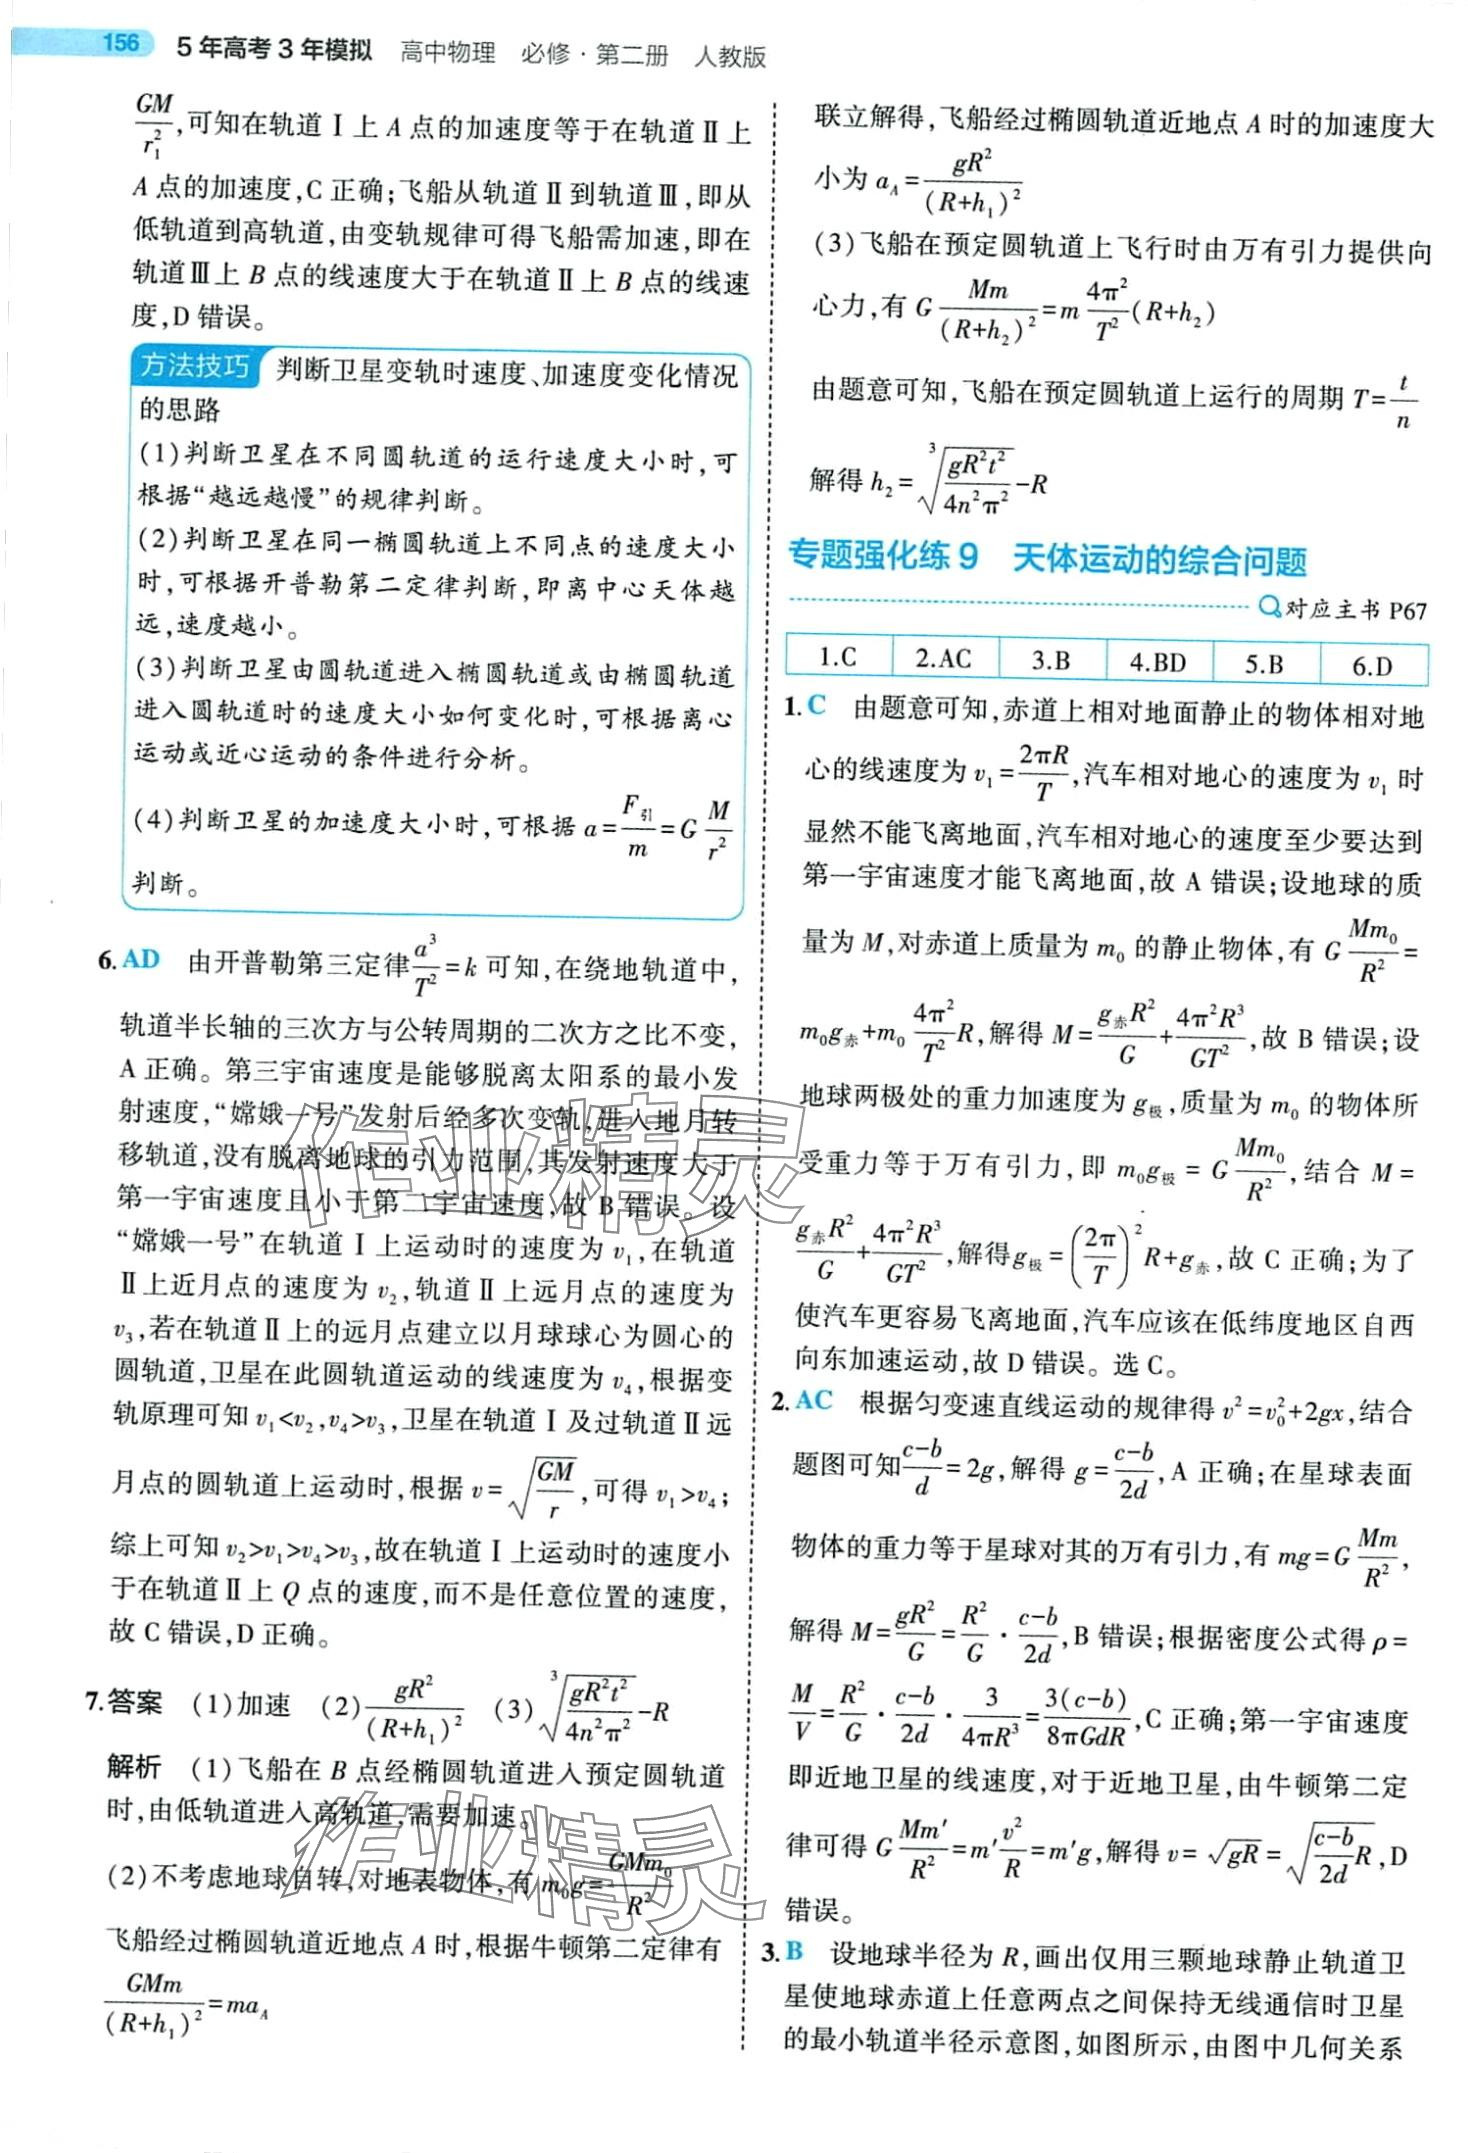 156 5年高考3年模拟 高中物理 必修·第二册 人教版
GM/r₁²,可知在轨道Ⅰ上A点的加速度等于在轨道Ⅱ上
A点的加速度,C正确;飞船从轨道Ⅱ到轨道Ⅲ,即从
低轨道到高轨道,由变轨规律可得飞船需加速,即在
轨道Ⅲ上B点的线速度大于在轨道Ⅱ上B点的线速
度,D错误。
方法技巧 判断卫星变轨时速度、加速度变化情况
的思路
(1)判断卫星在不同圆轨道的运行速度大小时,可
根据“越远越慢”的规律判断。
(2)判断卫星在同一椭圆轨道上不同点的速度大小
时,可根据开普勒第二定律判断,即离中心天体越
远,速度越小。
(3)判断卫星由圆轨道进入椭圆轨道或由椭圆轨道
进入圆轨道时的速度大小如何变化时,可根据离心
运动或近心运动的条件进行分析。
(4)判断卫星的加速度大小时,可根据a=F引/m=G M/r²
判断。
6.AD 由开普勒第三定律a³/T²=k可知,在绕地轨道中,
轨道半长轴的三次方与公转周期的二次方之比不变,
A正确。第三宇宙速度是能够脱离太阳系的最小发
射速度,“嫦娥一号”发射后经多次变轨,进入地月转
移轨道,没有脱离地球的引力范围,其发射速度大于
第一宇宙速度且小于第二宇宙速度,故B错误。设
“嫦娥一号”在轨道Ⅰ上运动时的速度为v₁,在轨道
Ⅱ上近月点的速度为v₂,轨道Ⅱ上远月点的速度为
v₃,若在轨道Ⅱ上的远月点建立以月球球心为圆心的
圆轨道,卫星在此圆轨道运动的线速度为v₄,根据变
轨原理可知v₁<v₂,v₄>v₃,卫星在轨道Ⅰ及过轨道Ⅱ远
月点的圆轨道上运动时,根据v=√(GM/r),可得v₁>v₄;
综上可知v₂>v₁>v₄>v₃,故在轨道Ⅰ上运动时的速度小
于在轨道Ⅱ上Q点的速度,而不是任意位置的速度,
故C错误,D正确。
7.答案 (1)加速 (2)gR²/(R+h₁)² (3)³√(gR²t²/4n²π²)-R
解析 (1)飞船在B点经椭圆轨道进入预定圆轨道
时,由低轨道进入高轨道,需要加速。
(2)不考虑地球自转,对地表物体,有m₀g=GMm₀/R²
飞船经过椭圆轨道近地点A时,根据牛顿第二定律有
GMm/(R+h₁)²=ma_A
联立解得,飞船经过椭圆轨道近地点A时的加速度大
小为a_A=gR²/(R+h₁)²
(3)飞船在预定圆轨道上飞行时由万有引力提供向
心力,有G Mm/(R+h₂)²=m 4π²/T²(R+h₂)
由题意可知,飞船在预定圆轨道上运行的周期T=t/n
解得h₂=³√(gR²t²/4n²π²)-R
专题强化练9 天体运动的综合问题
对应主书P67
1.C 2.AC 3.B 4.BD 5.B 6.D
1.C 由题意可知,赤道上相对地面静止的物体相对地
心的线速度为v₁=2πR/T,汽车相对地心的速度为v₁时
显然不能飞离地面,汽车相对地心的速度至少要达到
第一宇宙速度才能飞离地面,故A错误;设地球的质
量为M,对赤道上质量为m₀的静止物体,有G Mm₀/R²=
m₀g赤+m₀ 4π²/T² R,解得M=g赤R²/G+4π²R³/GT²,故B错误;设
地球两极处的重力加速度为g极,质量为m₀的物体所
受重力等于万有引力,即m₀g极=G Mm₀/R²,结合M=
g赤R²/G+4π²R³/GT²,解得g极=(2π/T)²R+g赤,故C正确;为了
使汽车更容易飞离地面,汽车应该在低纬度地区自西
向东加速运动,故D错误。选C。
2.AC 根据匀变速直线运动的规律得v²=v₀²+2gx,结合
题图可知(c-b)/d=2g,解得g=(c-b)/2d,A正确;在星球表面
物体的重力等于星球对其的万有引力,有mg=G Mm/R²,
解得M=gR²/G=R²/G·(c-b)/2d,B错误;根据密度公式得ρ=
M/V=R²/G·(c-b)/2d·3/4πR³=3(c-b)/8πGdR,C正确;第一宇宙速度
即近地卫星的线速度,对于近地卫星,由牛顿第二定
律可得G Mm′/R²=m′v²/R=m′g,解得v=√gR=√((c-b)/2d R),D
错误。
3.B 设地球半径为R,画出仅用三颗地球静止轨道卫
星使地球赤道上任意两点之间保持无线通信时卫星
的最小轨道半径示意图,如图所示,由图中几何关系
作业精灵
作业精灵